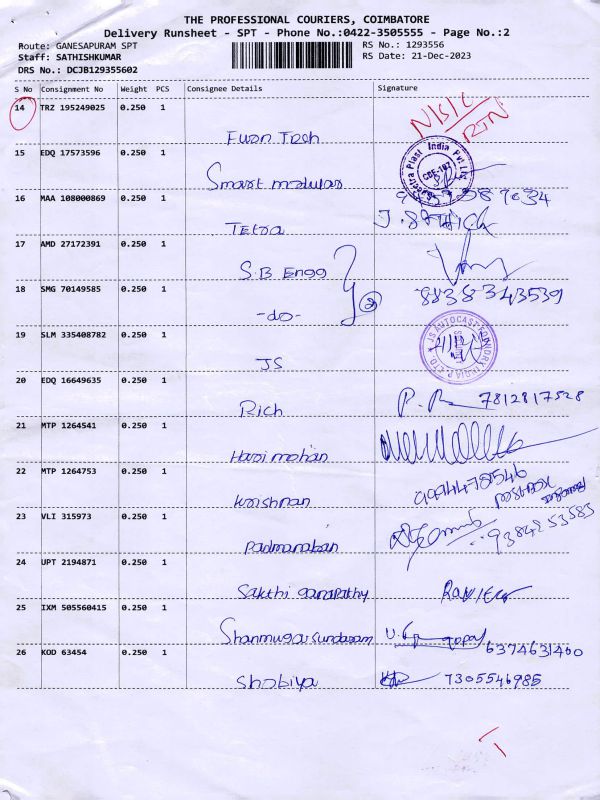 THE PROFESSIONAL COURIERS, COIMBATORE
Delivery Runsheet - SPT - Phone No.:0422-3505555 - Page No.:2
Route: GANESAPURAM SPT
RS No.: 1293556
Staff: SATHISHKUMAR
RS Date: 21-Dec-2023
DRS No.: DCJB129355602
S No Consignment No Weight PCS Consignee Details Signature
14 TRZ 195249025 0.250 1
N/S/C
RTN
Ewon Tech
15 EDQ 17573596 0.250 1
Spectra Plast India Pvt Ltd
CBE-107
Smart modular
16 MAA 108000869 0.250 1
Tetra
17 AMD 27172391 0.250 1
S.B Engg
18 SMG 70149585 0.250 1
-do-
2
8838343539
19 SLM 335408782 0.250 1
JS AUTOCAST FOUNDRY INDIA P. LTD
JS
20 EDQ 16649635 0.250 1
Rich
7812817528
21 MTP 1264541 0.250 1
Harimohan
22 MTP 1264753 0.250 1
Krishnan
23 VLI 315973 0.250 1
Padmanaban
24 UPT 2194871 0.250 1
Sakthi ganapathy
25 IXM 505560415 0.250 1
Shanmugasundaram
6374631400
26 KOD 63454 0.250 1
Shobiya
7305546985